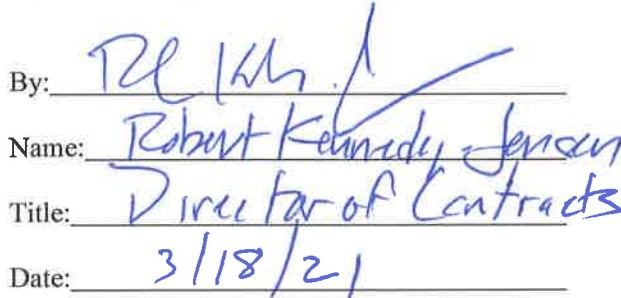 By:
Name: Robert Kennedy-Jensen
Title: Director of Contracts
Date: 3/18/21